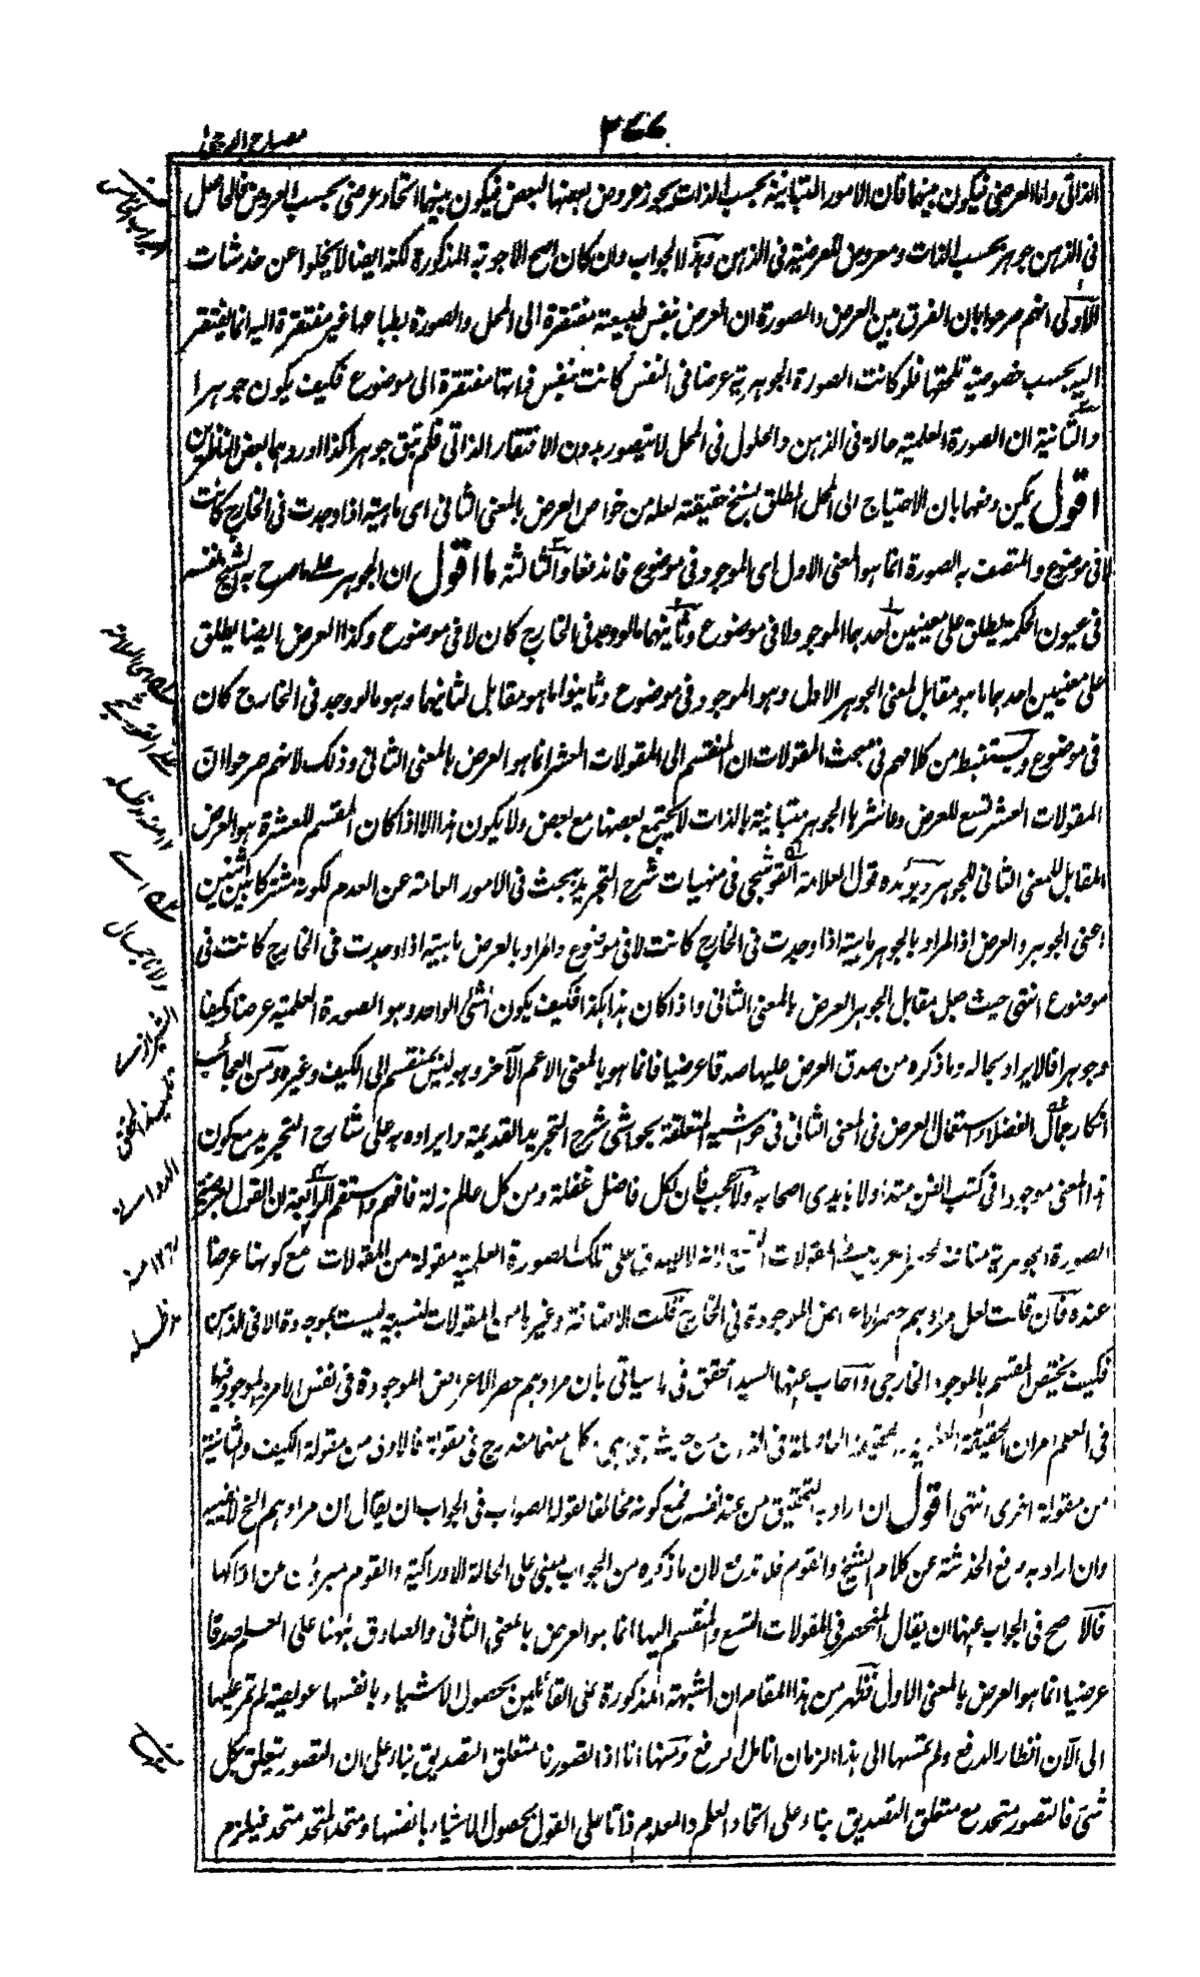 ٣٧٧
مصباح الدجى
الذاتى واما العرضى فيكون بينهما فان الامور المتبائنة بحسب الذات يجوز عروض بعضها لبعض فيكون بينهما اتحاد عرضى بحسب العروض فالحاصل
فى الذهن جوهر بحسب الذات ومعروض للعرضية فى الذهن وهذا الجواب وان كان اصح الاجوبة المذكورة لكنه ايضا لا يخلوا عن خدشات
الاولى انهم صرحوا بان الفرق بين العرض والصورة ان العرض بنفس طبيعته مفتقرة الى المحل والصورة بطباعها غير مفتقرة اليه انما يفتقر
اليه بحسب خصوصية تلحقها فلو كانت الصورة الجوهرية عرضا فى النفس كانت بنفس ذاتها مفتقرة الى موضوع فكيف يكون جوهرا
والثانية ان الصورة العلمية حالة فى الذهن والحلول فى المحل لا يتصور بدون الافتقار الذاتى فلم تبق جوهرا هكذا اوردهما بعض الناظرين
اقول يمكن دفعها بان الاحتياج الى المحل المطلق بسنخ حقيقته لعله من خواص العرض بالمعنى الثانى اى ماهية اذا وجدت فى الخارج كانت
فى موضوع والمتصف به الصورة انما هو المعنى الاول اى الموجود فى موضوع فاندفعا والثالثة ما اقول ان الجوهر على ما صرح به الشيخ نفسه
فى عيون الحكمة يطلق على معنيين احدهما الموجود لا فى موضوع وثانيهما ما لو وجد فى الخارج كان لا فى موضوع وكذا العرض ايضا يطلق
على معنيين احدهما ما هو مقابل لمعنى الجوهر الاول وهو الموجود فى موضوع وثانيهما ما هو مقابل لثانيهما وهو ما لو وجد فى الخارج كان
فى موضوع ويستنبط من كلامهم فى مبحث المقولات ان المنقسم الى المقولات العشر انما هو العرض بالمعنى الثانى وذلك لانهم صرحوا ان
المقولات العشر تسع للعرض وعاشرها الجوهر متبائنة بالذات لا يجتمع بعضها مع بعض ولا يكون هذا الا اذا كان المقسم للعشرة هو العرض
المقابل للمعنى الثانى للجوهر ويؤيده قول العلامة القوشجى فى منهيات شرح التجريد يبحث فى الامور العامة عن العدم لكونه مشتركا بين اثنين
اعنى الجوهر والعرض اذ المراد بالجوهر ماهية اذا وجدت فى الخارج كانت لا فى موضوع والمراد بالعرض ماهية اذا وجدت فى الخارج كانت فى
موضوع انتهى حيث جعل مقابل الجوهر العرض بالمعنى الثانى واذا كان هذا هكذا فكيف يكون الشئ الواحد وهو الصورة العلمية عرضا وكيفا
وجوهرا فالايراد بحاله وما ذكره من صدق العرض عليها صدقا عرضيا فانما هو بالمعنى الاعم الآخر وهو ليس بمنقسم الى الكيف وغيره ومن العجائب
انكار جمال الفضلاء استعمال العرض فى المعنى الثانى فى حواشيه المتعلقة بحواشى شرح التجريد القديمة وايراده به على شارح التجريد مع كون
هذا المعنى موجودا فى كتب الفن متداولا بايدى اصحابه ولا عجب فان لكل فاضل غفلة ومن كل عالم زلة فافهم واستقم الرابعة ان القول بعرضية
الصورة الجوهرية مناف لحصر العرض فى المقولات التسع لانه لا يصدق على تلك الصورة العلمية مقولة من المقولات مع كونها عرضا
عنده فان قلت لعل مرادهم حصر الاعراض الموجودة فى الخارج قلت الاضافة وغيرها من المقولات النسبية ليست بموجودة الا فى الذهن
فكيف يختص المقسم بالموجود الخارجى واجاب عنها السيد المحقق فى ما سياتى بان مرادهم حصر الاعراض الموجودة فى نفس الامر والموجود فيها
فى العلم امران الحقيقة العلمية والحقيقة الحاصلة فى الذهن من حيث هى هى وكل منهما مندرج فى مقولة فالاولى من مقولة الكيف والثانية
من مقولة اخرى انتهى اقول ان اراد به التحقيق من عند نفسه فمع كونه مخالفا لقوله الصواب فى الجواب ان يقال ان مرادهم الخ لا يفيد
وان اراد به دفع الخدشة عن كلام الشيخ والقوم فلا تدفع لان ما ذكره من الجواب مبنى على الحالة الادراكية والقوم مبرؤن عن ادراكها
فالاصح فى الجواب عنها ان يقال المنحصر فى المقولات التسع والمنقسم اليها انما هو العرض بالمعنى الثانى والصادق ههنا على العلم صدقا
عرضيا انما هو العرض بالمعنى الاول فظهر من هذا المقام ان الشبهة المذكورة على القائلين بحصول الاشياء بانفسها عويصة لم تمر عليها
الى الآن انظار الدفع ولم تمسها الى هذا الزمان انامل الرفع ومنها انا اذا تصورنا متعلق التصديق بناء على ان التصور يتعلق بكل
شئ فالتصور متحد مع متعلق التصديق بناء على اتحاد العلم والمعلوم ذاتا على القول بحصول الاشياء بانفسها ومتحد المتحد متحد فيلزم
اى العلامة
على القوشجى
منه
مولانا جمال
الشيرازى
تلميذ المحقق
الدوانى
١٢ منه